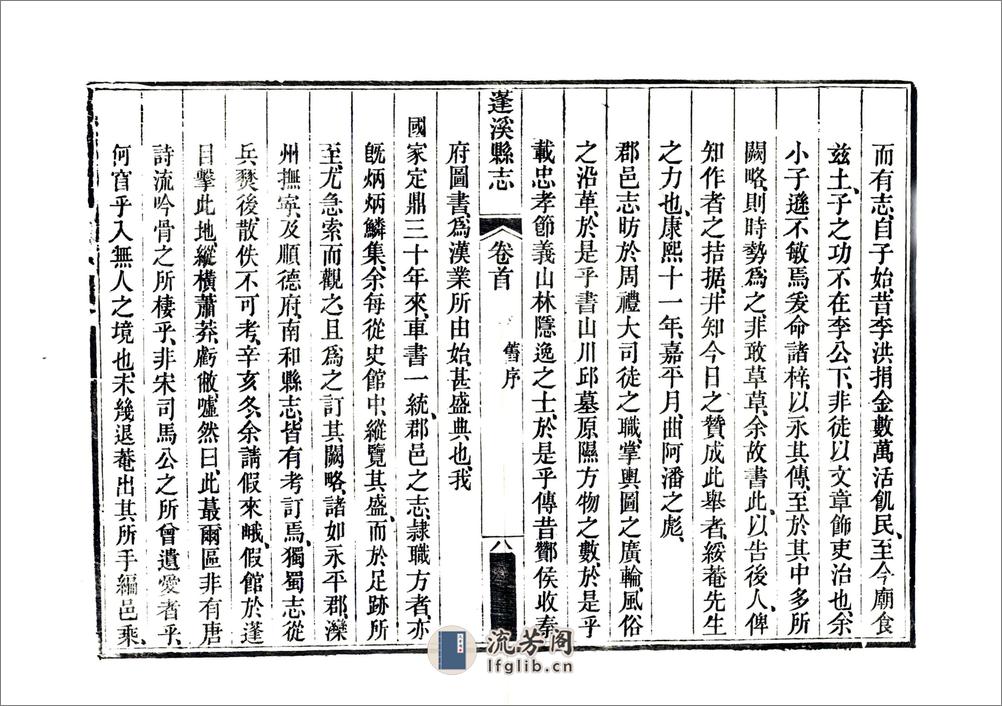 而有志、自子始、昔李洪捐金數萬活飢民、至今廟食
玆土、子之功不在李公下、非徒以文章飾吏治也、余
小子遜不敏焉、爰命諸梓、以永其傳、至於其中多所
闕略、則時勢爲之、非敢草草、余故書此、以告後人、俾
知作者之拮据、并知今日之贊成此舉者、綏菴先生
之力也、康熙十一年、嘉平月、曲阿潘之彪、
郡邑志昉於周禮大司徒之職、掌輿圖之廣輪、風俗
之沿革、於是乎書山川邱墓原隰方物之數、於是乎
載忠孝節義山林隱逸之士、於是乎傳昔酇侯收秦
蓬溪縣志 卷首 舊序 八
府圖書、爲漢業所由始、甚盛典也、我
國家定鼎三十年來、車書一統、郡邑之志、隷職方者、亦
旣炳炳鱗集、余每從史館中、縱覽其盛、而於足跡所
至、尤急索而觀之、且爲之訂其闕略、諸如永平郡、灤
州撫寧、及順德府、南和縣志、皆有考訂焉、獨蜀志從
兵燹後、散佚不可考、辛亥冬、余請假來峨、假館於蓬
目擊此地、縱橫蕭莽、虧敝噓然曰、此蕞爾區非有唐
詩流吟骨之所棲乎、非宋司馬公之所曾遺愛者乎、
何窅乎入無人之境也、未幾退菴出其所手編邑乘、
流芳阁
lfglib.cn